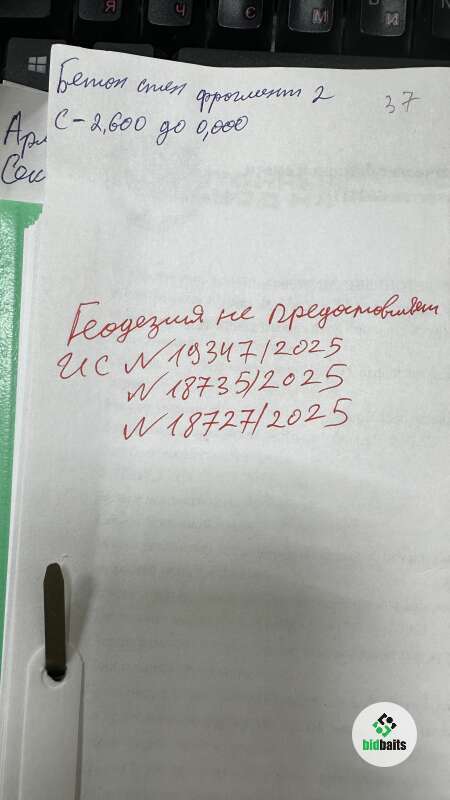 Я Ч С М И
Бетон стен фрагмент 2
37
С-2,600 до 0,000
Арм
Сек
Геодезия не предоставлялась
ИС N 19347/2025
N 18735/2025
N 18727/2025
bidbaits